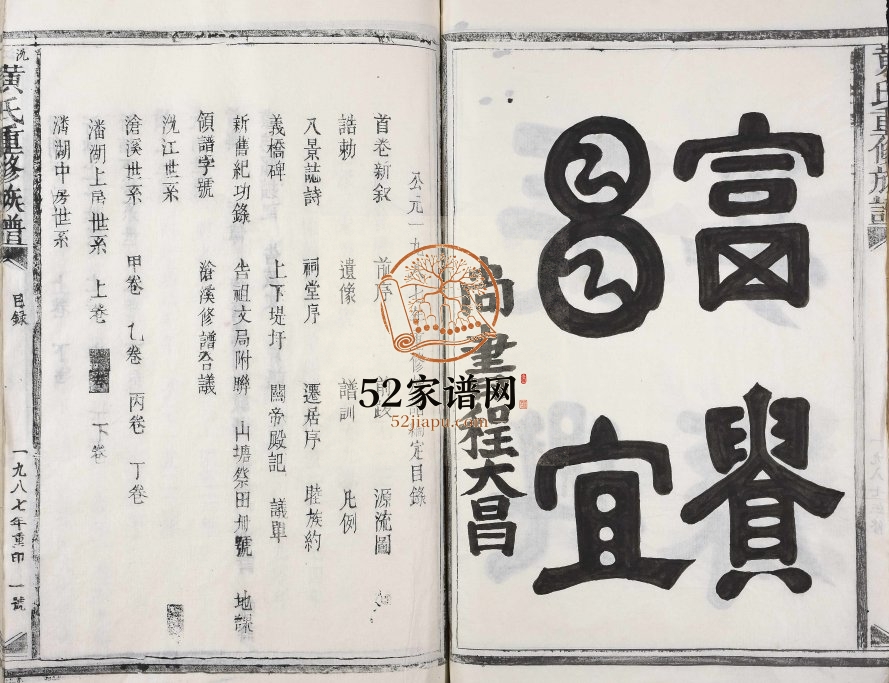 黃氏重修族譜
富貴
昌宜
尚書程大昌
公元一九
定目錄
首卷新叙 前序 源流圖
誥勅 遺像 譜訓 凡例
八景誌詩 祠堂序 遷居序 睦族約
義橋碑 上下堤圩 關帝殿記 議單
新舊紀功錄 告祖文局附聯 山塘祭田册號 地課
領譜字號 滄溪修譜合議
沇江世系
滄溪世系 甲卷 乙卷 丙卷 丁卷
潘湖上房世系 上卷 下卷
潘湖中房世系
沇黃氏重修族譜
目錄
一九八七年重印 一號
52家谱网
52jiapu.com